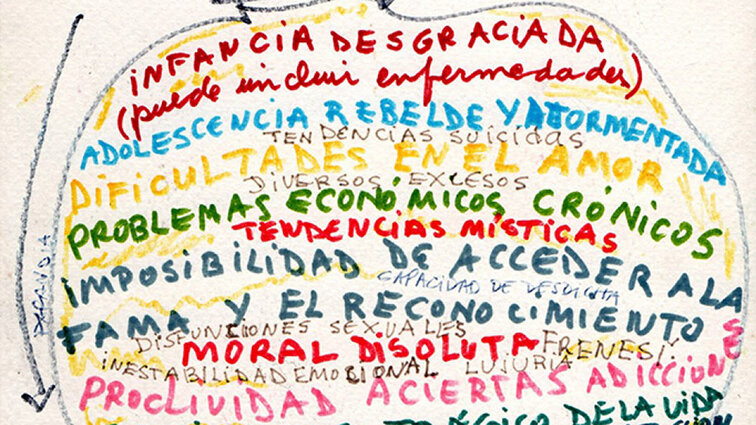 INFANCIA DESGRACIADA
(puede incluir enfermedades)
ADOLESCENCIA REBELDE Y ATORMENTADA
TENDENCIAS SUICIDAS
DIFICULTADES EN EL AMOR
DIVERSOS EXCESOS
PROBLEMAS ECONÓMICOS CRÓNICOS
TENDENCIAS MÍSTICAS
IMPOSIBILIDAD DE ACCEDER A LA
CAPACIDAD DE
FAMA Y EL RECONOCIMIENTO
DISFUNCIONES SEXUALES
MORAL DISOLUTA FRENESÍ
INESTABILIDAD EMOCIONAL LUJURIA
PROCLIVIDAD A CIERTAS ADICCIONES
DE LA VIDA